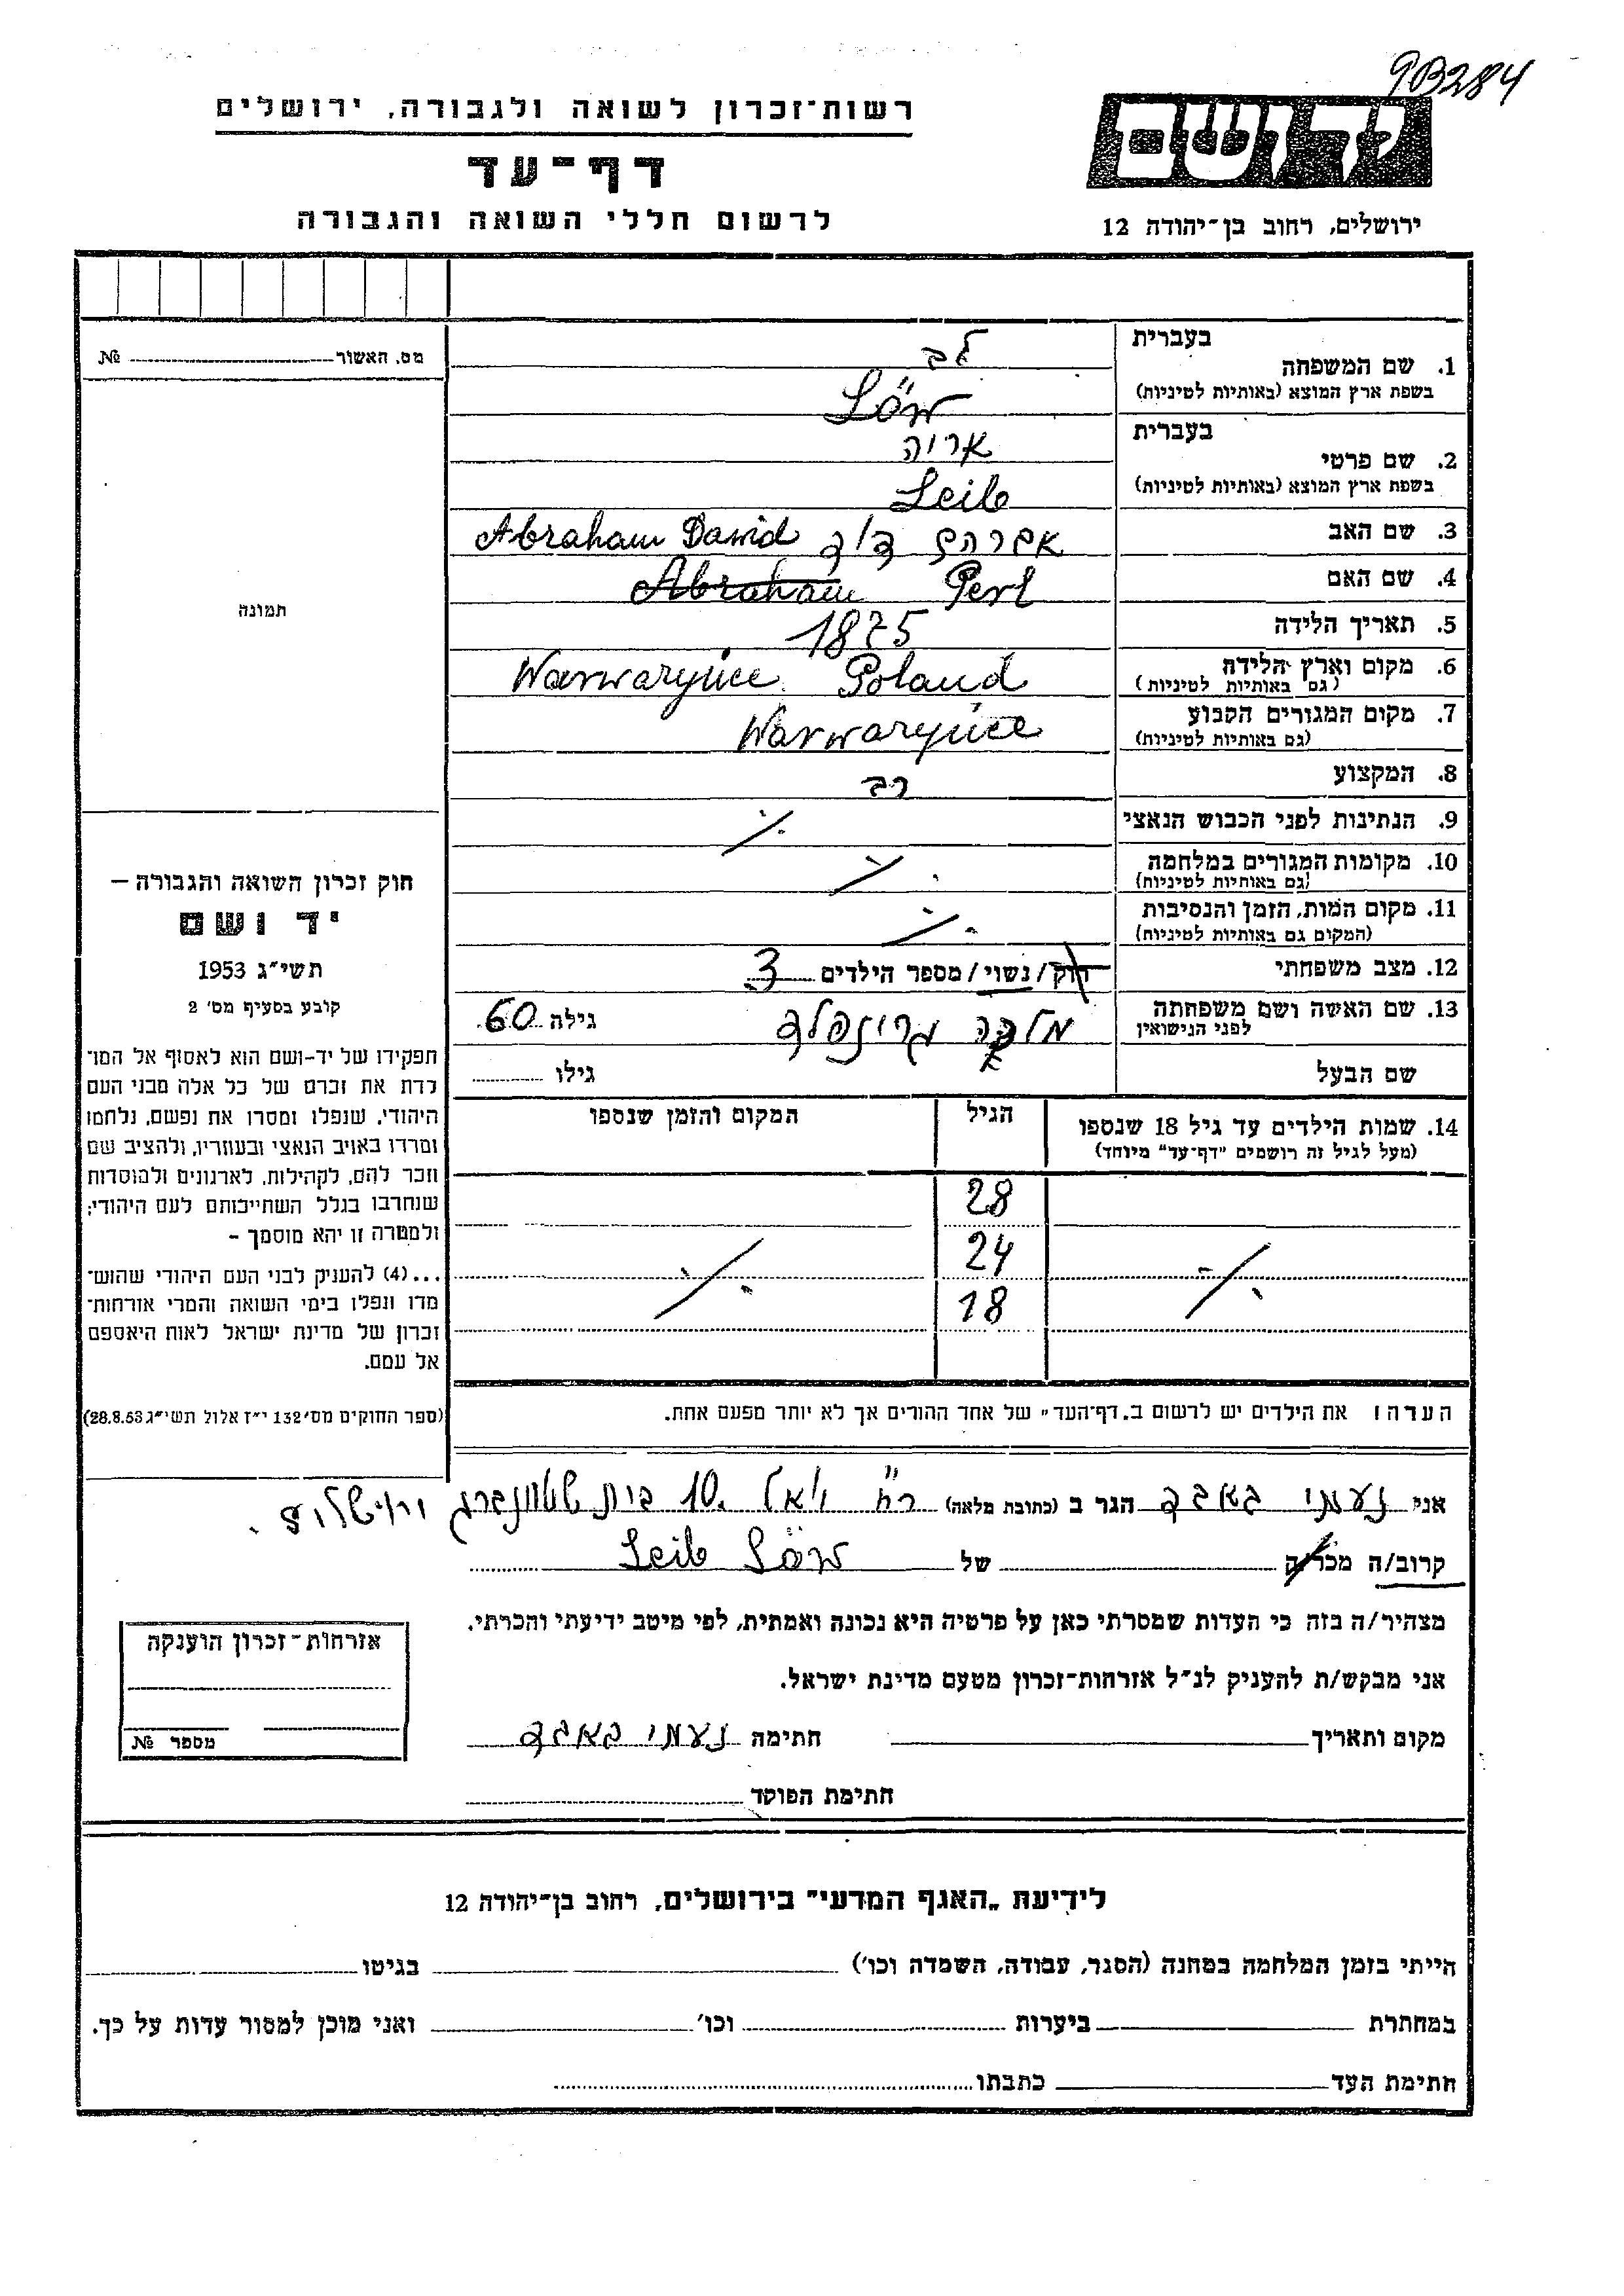 9B284
רשות־זכרון לשואה ולגבורה, ירושלים
יד ושם
דף־עד
לרשום חללי השואה והגבורה
ירושלים, רחוב בן־יהודה 12
מס. האשור № 
תמונה
חוק זכרון השואה והגבורה —
יד ושם
תשי״ג 1953
קובע בסעיף מס׳ 2
תפקידו של יד-ושם הוא לאסוף אל המו־
לדת את זכרם של כל אלה מבני העם
היהודי, שנפלו ומסרו את נפשם, נלחמו
ומרדו באויב הנאצי ובעוזריו, ולהציב שם
וזכר להם, לקהילות, לארגונים ולמוסדות
שנחרבו בגלל השתייכותם לעם היהודי;
ולמטרה זו יהא מוסמך -
...(4) להעניק לבני העם היהודי שהוש־
מדו ונפלו בימי השואה והמרי אזרחות־
זכרון של מדינת ישראל לאות היאספם
אל עמם.
(ספר החוקים מס׳ 132 י״ז אלול תשי״ג 28.8.53)
1. שם המשפחה בעברית לב
בשפת ארץ המוצא (באותיות לטיניות) Löw
2. שם פרטי בעברית אריה
בשפת ארץ המוצא (באותיות לטיניות) Leib
3. שם האב אברהם דוד Abraham Dawid
4. שם האם Perl Abraham
5. תאריך הלידה 1875
6. מקום וארץ הלידה (גם באותיות לטיניות) Warwarynce Poland
7. מקום המגורים הקבוע (גם באותיות לטיניות) Warwarynce
8. המקצוע רב
9. הנתינות לפני הכבוש הנאצי ·/·
10. מקומות המגורים במלחמה (גם באותיות לטיניות) ·/·
11. מקום המות, הזמן והנסיבות (המקום גם באותיות לטיניות) ·/·
12. מצב משפחתי רוק/נשוי/מספר הילדים 3
13. שם האשה ושם משפחתה לפני הנישואין מלכה גרינפלד גילה 60
שם הבעל גילו
14. שמות הילדים עד גיל 18 שנספו הגיל המקום והזמן שנספו
(מעל לגיל זה רושמים "דף־עד" מיוחד)
28
·/· 24 ·/·
18
הערה: את הילדים יש לרשום ב„דף־העד" של אחד ההורים אך לא יותר מפעם אחת.
אני נעמי הגר ב (כתובת מלאה) רח׳ 10 בית ירושלים.
קרוב/ה מכר/ה של Leib Löw
מצהיר/ה בזה כי העדות שמסרתי כאן על פרטיה היא נכונה ואמתית, לפי מיטב ידיעתי והכרתי.
אני מבקש/ת להעניק לנ״ל אזרחות־זכרון מטעם מדינת ישראל.
מקום ותאריך חתימה נעמי
חתימת הפוקד
אזרחות־זכרון הוענקה
מספר №
לידיעת „האגף המדעי" בירושלים, רחוב בן־יהודה 12
הייתי בזמן המלחמה במחנה (הסגר, עבודה, השמדה וכו׳) בגיטו
במחתרת ביערות וכו׳ ואני מוכן למסור עדות על כך.
חתימת העד כתבתו